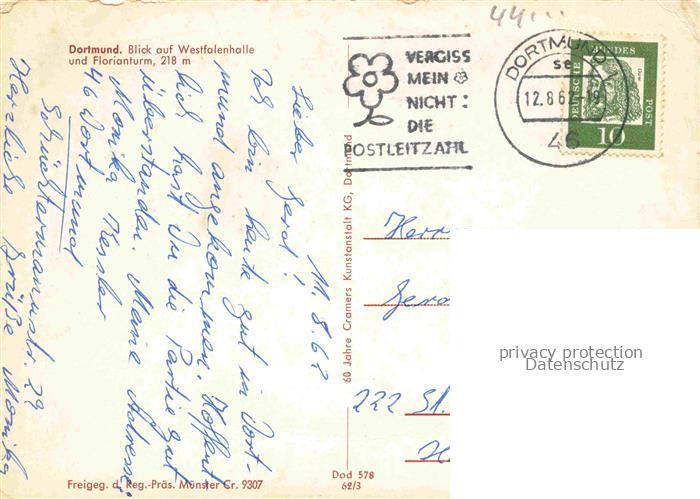 44...
Dortmund. Blick auf Westfalenhalle
und Florianturm, 218 m
VERGISS
MEIN
NICHT:
DIE
POSTLEITZAHL
DORTMUND
12.8.62-19
46
DEUTSCHE BUNDES POST
10
11.8.62
Lieber Gerd!
Ich bin heute gut in Dort-
mund angekommen. Hoffent-
lich hast Du die Partie gut
überstanden. Meine Adresse:
Monika Kessler
46 Dortmund
Schüchtermannstr. 29
Herzliche Grüße Monika
60 Jahre Cramers Kunstanstalt KG, Dortmund
Herr
Gera
222 St.
H
privacy protection
Datenschutz
Freigeg. d. Reg.-Präs. Münster Cr. 9307
Dod 578
62/3